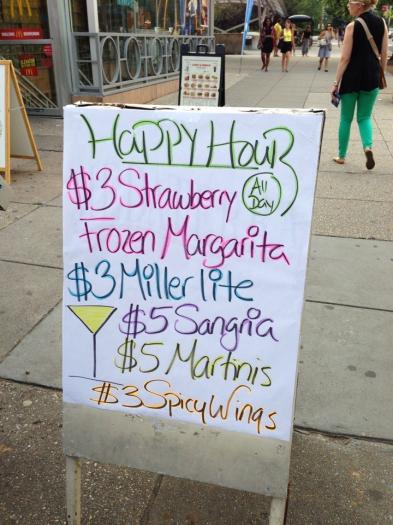 Happy Hour
$3 Strawberry All Day
Frozen Margarita
$3 Miller lite
$5 Sangria
$5 Martinis
$3 Spicy Wings